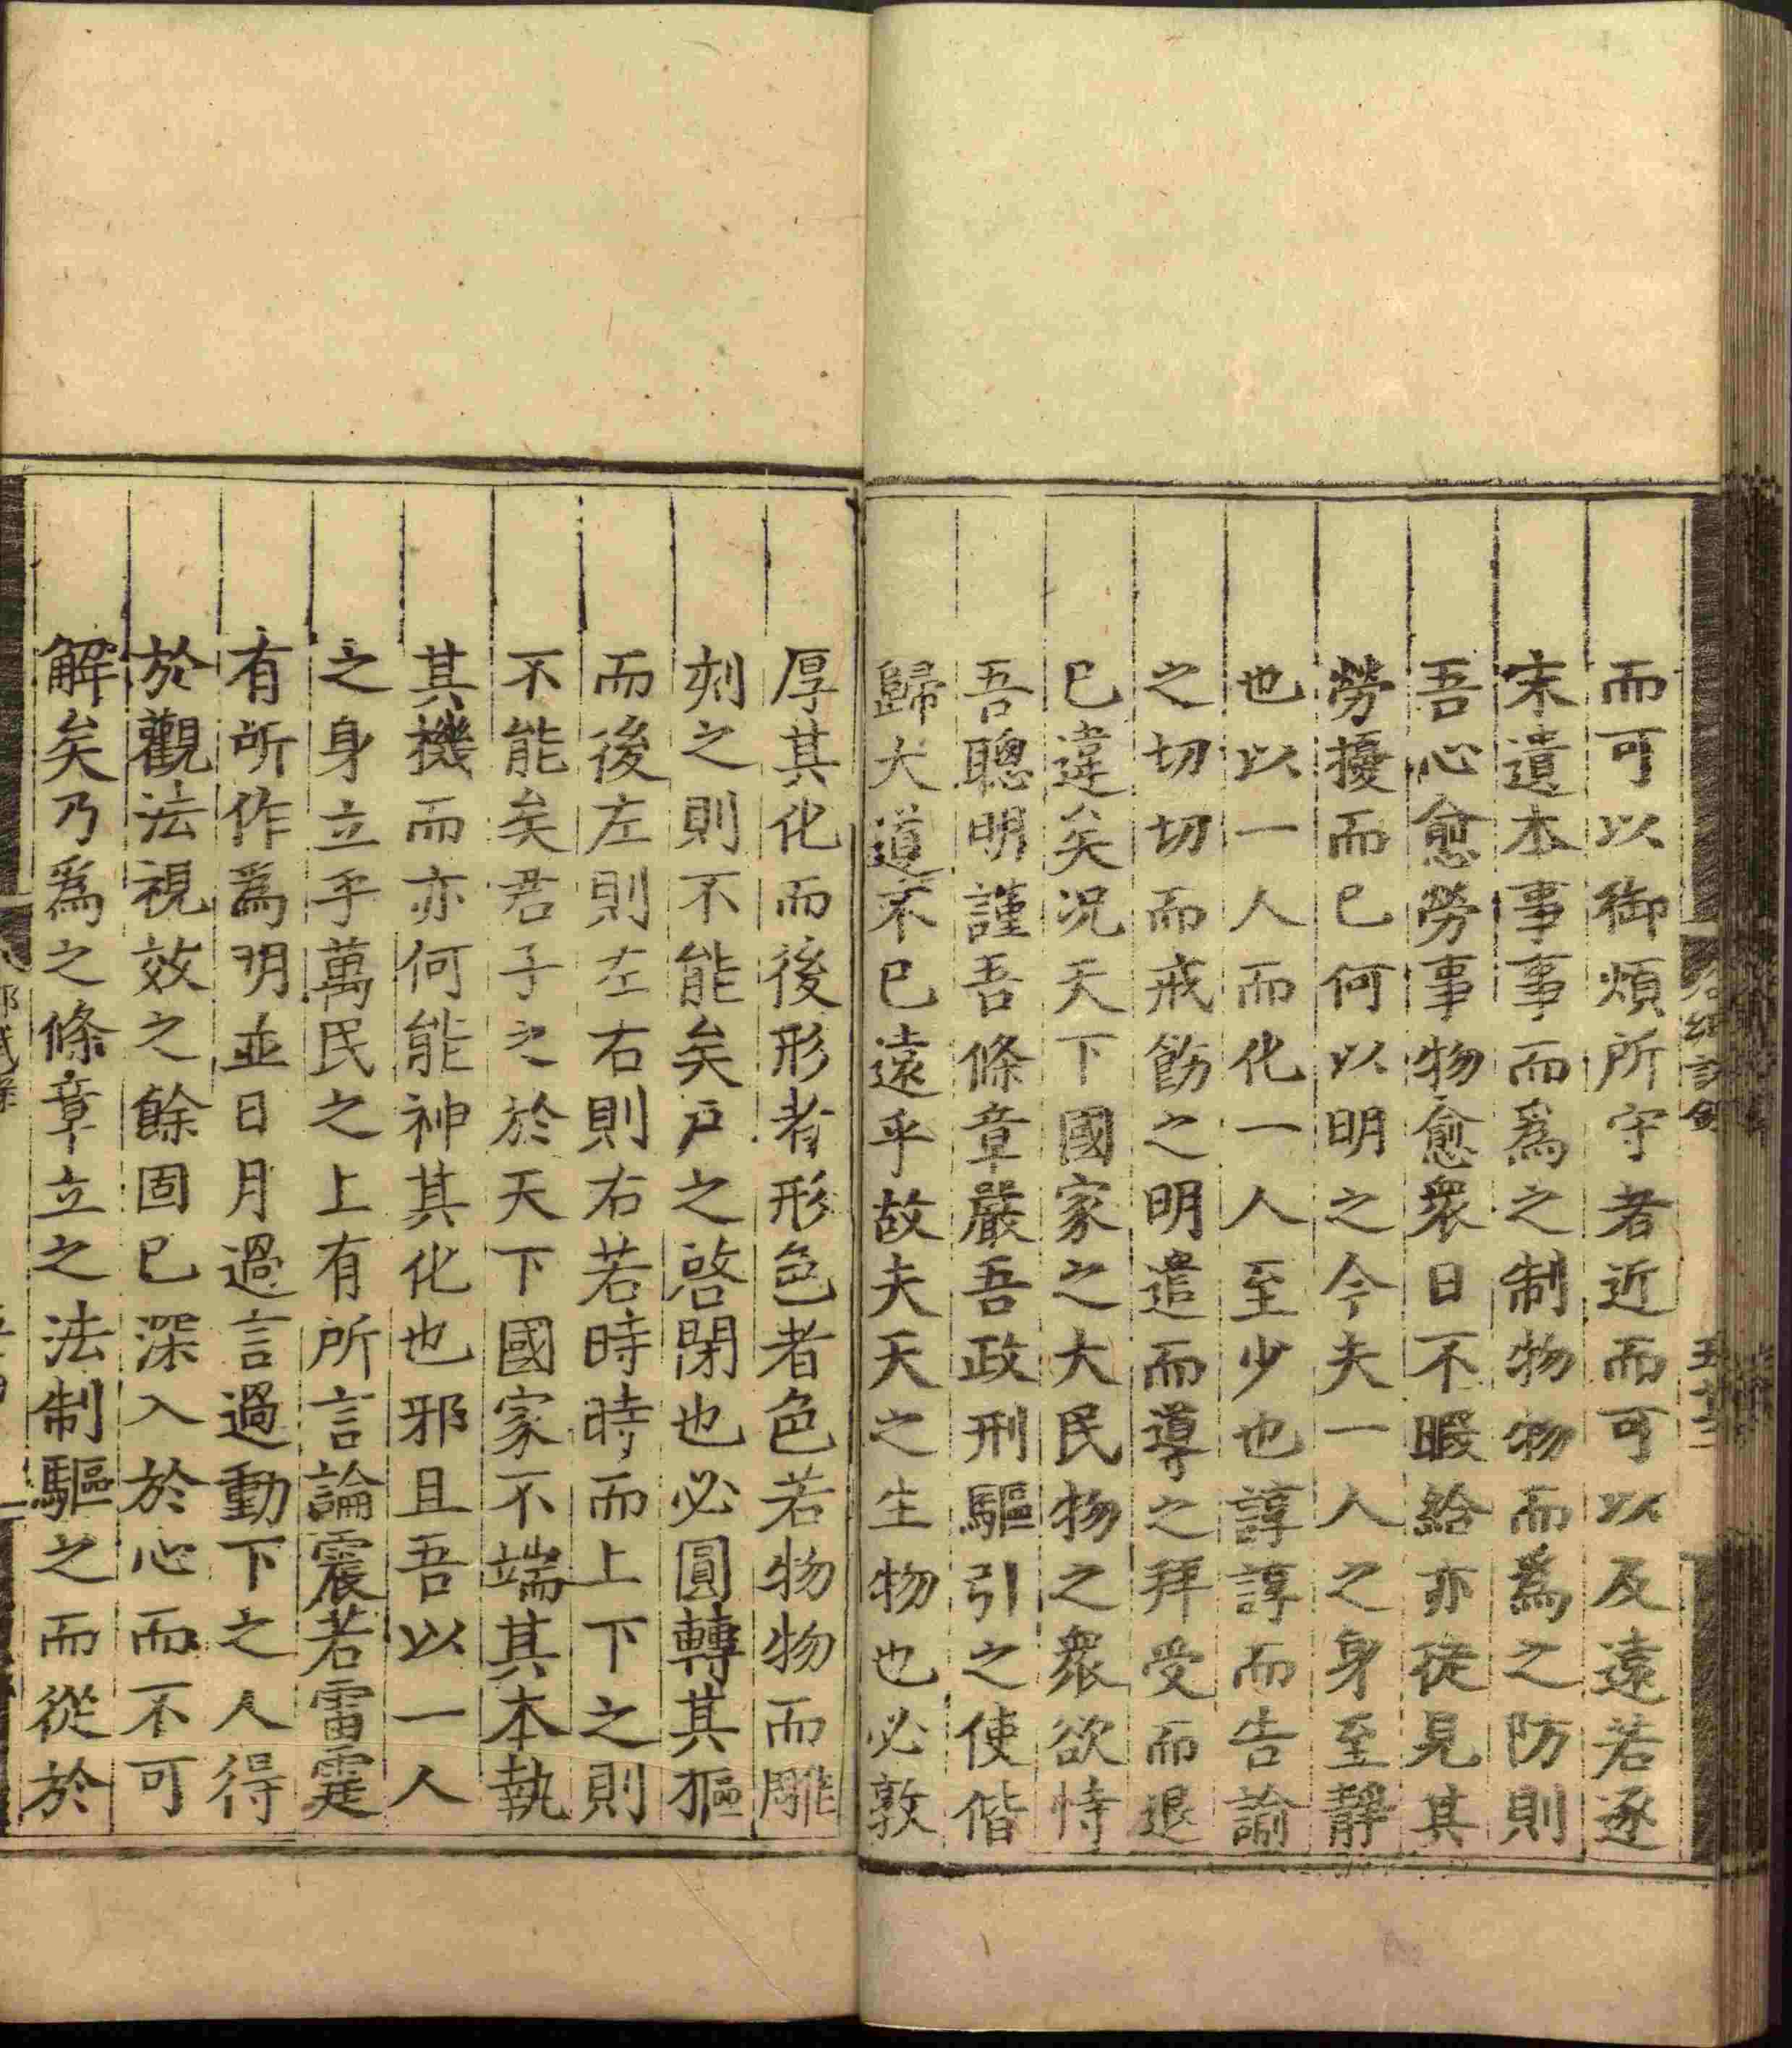 而可以御煩所守者近而可以及遠若逐
末遺本事事而爲之制物物而爲之防則
吾心愈勞事物愈衆日不暇給亦徒見其
勞擾而已何以明之今夫一人之身至靜
也以一人而化一人至少也諄諄而告諭
之切切而戒飭之明遣而導之拜受而退
已違矣況天下國家之大民物之衆欲恃
吾聰明謹吾條章嚴吾政刑驅引之使偕
歸大道不已遠乎故夫天之生物也必敦
厚其化而後形者形色者色若物物而雕
刻之則不能矣戸之啓閉也必圓轉其樞
而後左則左右則右若時時而上下之則
不能矣君子之於天下國家不端其本執
其機而亦何能神其化也邪且吾以一人
之身立乎萬民之上有所言論震若雷霆
有所作爲明並日月過言過動下之人得
於觀法視效之餘固已深入於心而不可
解矣乃爲之條章立之法制驅之而從於